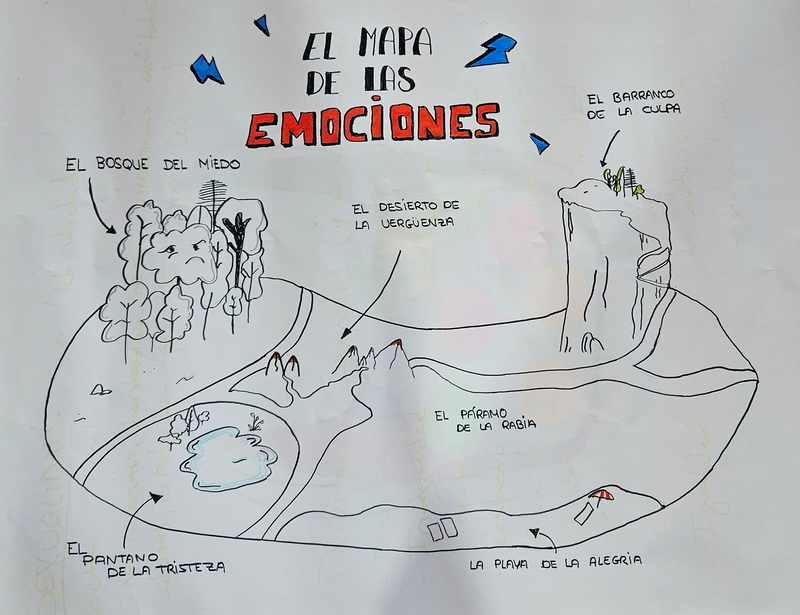 EL MAPA
DE LAS
EMOCIONES
EL BARRANCO
DE LA CULPA
EL BOSQUE DEL MIEDO
EL DESIERTO DE
LA VERGÜENZA
EL PÁRAMO
DE LA RABIA
EL
PANTANO
DE LA TRISTEZA
LA PLAYA DE LA ALEGRIA